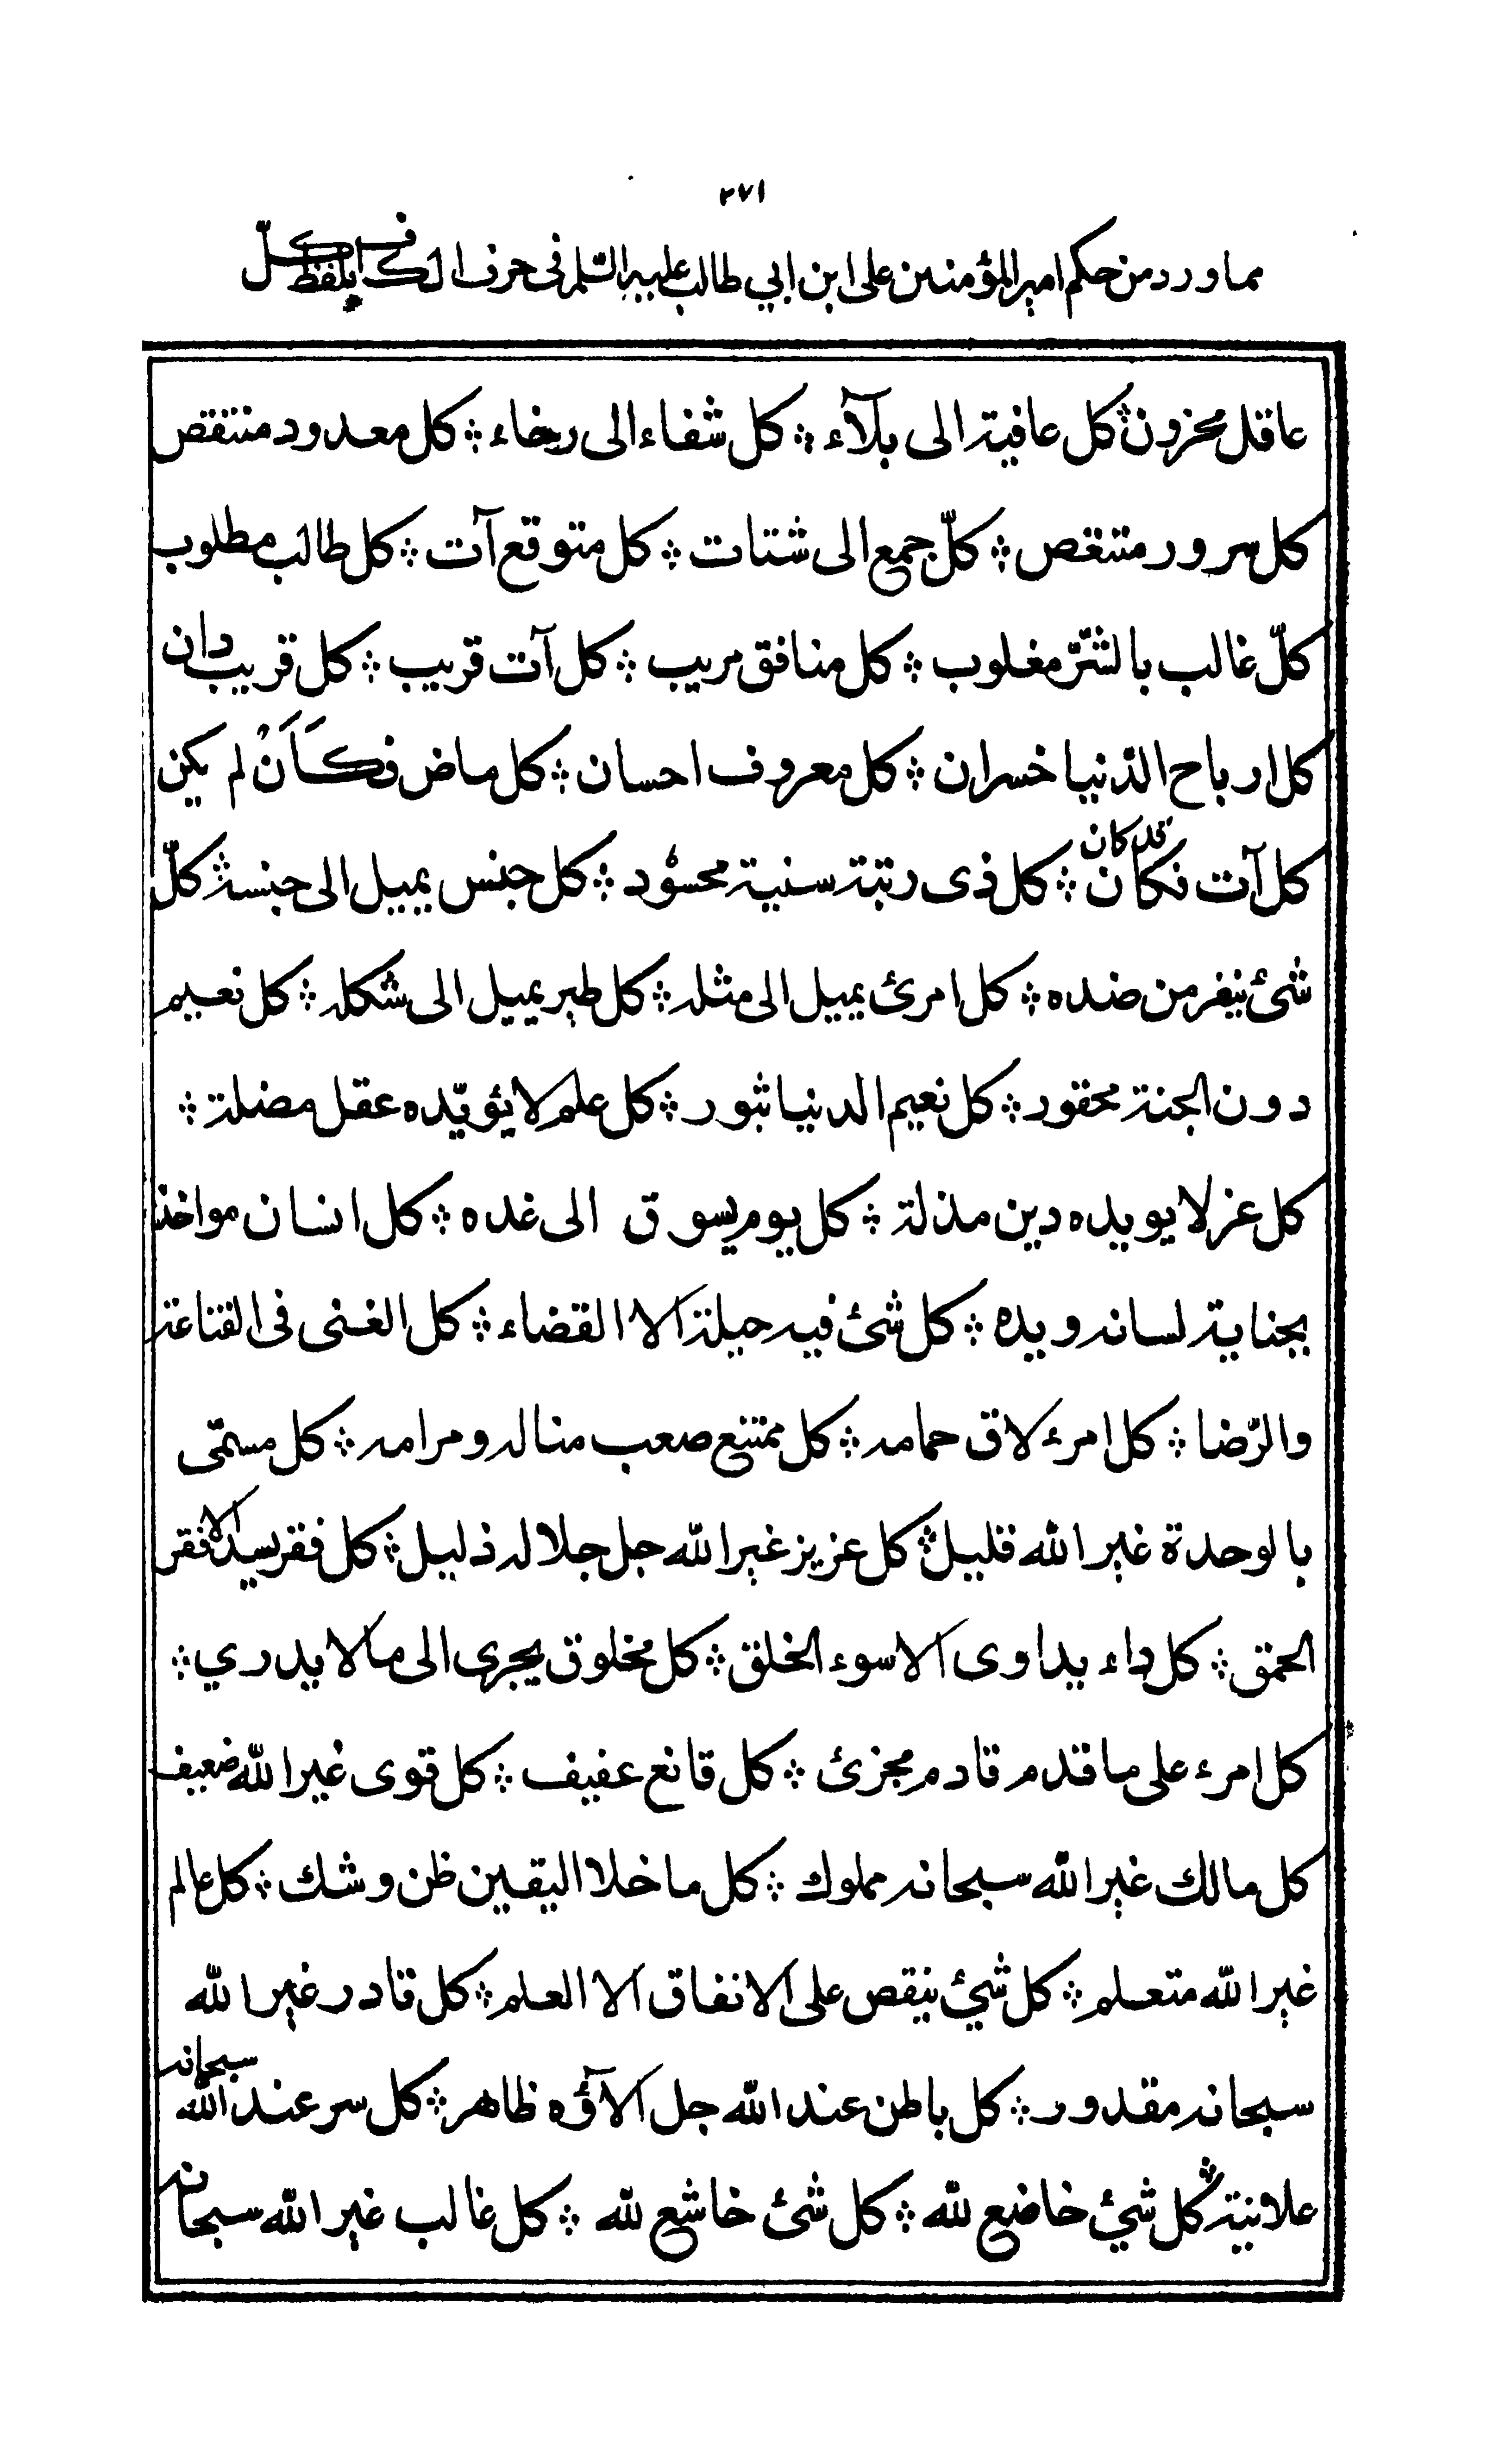 ٢٧١
مما ورد من حكم امير المؤمنين على ابن ابي طالب عليه السّلم فى حرف الكاف بلفظ كلّ
عاقل محزون ؞ كل عافية الى بلآء ؞ كل شفاء الى رخاء ؞ كل معدود منتقص
كل سرور متنغص ؞ كلّ جمع الى شتات ؞ كل متوقع آت ؞ كل طالب مطلوب
كلّ غالب بالشرّ مغلوب ؞ كل منافق مريب ؞ كل آت قريب ؞ كل قريب دان
كل ارباح الدّنيا خسران ؞ كل معروف احسان ؞ كل ماض فكَاَنْ لم يكن
كل آت فكان قد كان ؞ كل ذى رتبة سنية محسود ؞ كل جنس يميل الى جنسه ؞ كلّ
شئ ينفر من ضده ؞ كل امرئ يميل الى مثله ؞ كل طير يميل الى شكله ؞ كل نعيم
دون الجنة محقور ؞ كل نعيم الدنيا ثبور ؞ كل علم لا يؤيّده عقل مضلة ؞
كل عز لا يويده دين مذلة ؞ كل يوم يسوق الى غده ؞ كل انسان مواخذ
بجناية لسانه ويده ؞ كل شئ فيه حيلة الا القضاء ؞ كل الغنى فى القناعة
والرّضا ؞ كل امرء لاق حمامه ؞ كل ممتنع صعب مناله ومرامه ؞ كل مسمّى
بالوحدة غير الله قليل ؞ كل عزيز غير الله جل جلاله ذليل ؞ كل فقر يسد الا فقر
الحمق ؞ كل داء يداوى الا سوء الخلق ؞ كل مخلوق يجرى الى ما لا يدري ؞
كل امرء على ما قدم قادم مجزئ ؞ كل قانع عفيف ؞ كل قوى غير الله ضعيف
كل مالك غير الله سبحانه مملوك ؞ كل ما خلا اليقين ظن وشك ؞ كل عالم
غير الله متعلم ؞ كل شيئ ينقص على الانفاق الا العلم ؞ كل قادر غير الله
سبحانه مقدور ؞ كل باطن عند الله جل الآؤه ظاهر ؞ كل سر عند الله سبحانه
علانية ؞ كل شيئ خاضع لله ؞ كل شئ خاشع لله ؞ كل غالب غير الله سبحانه